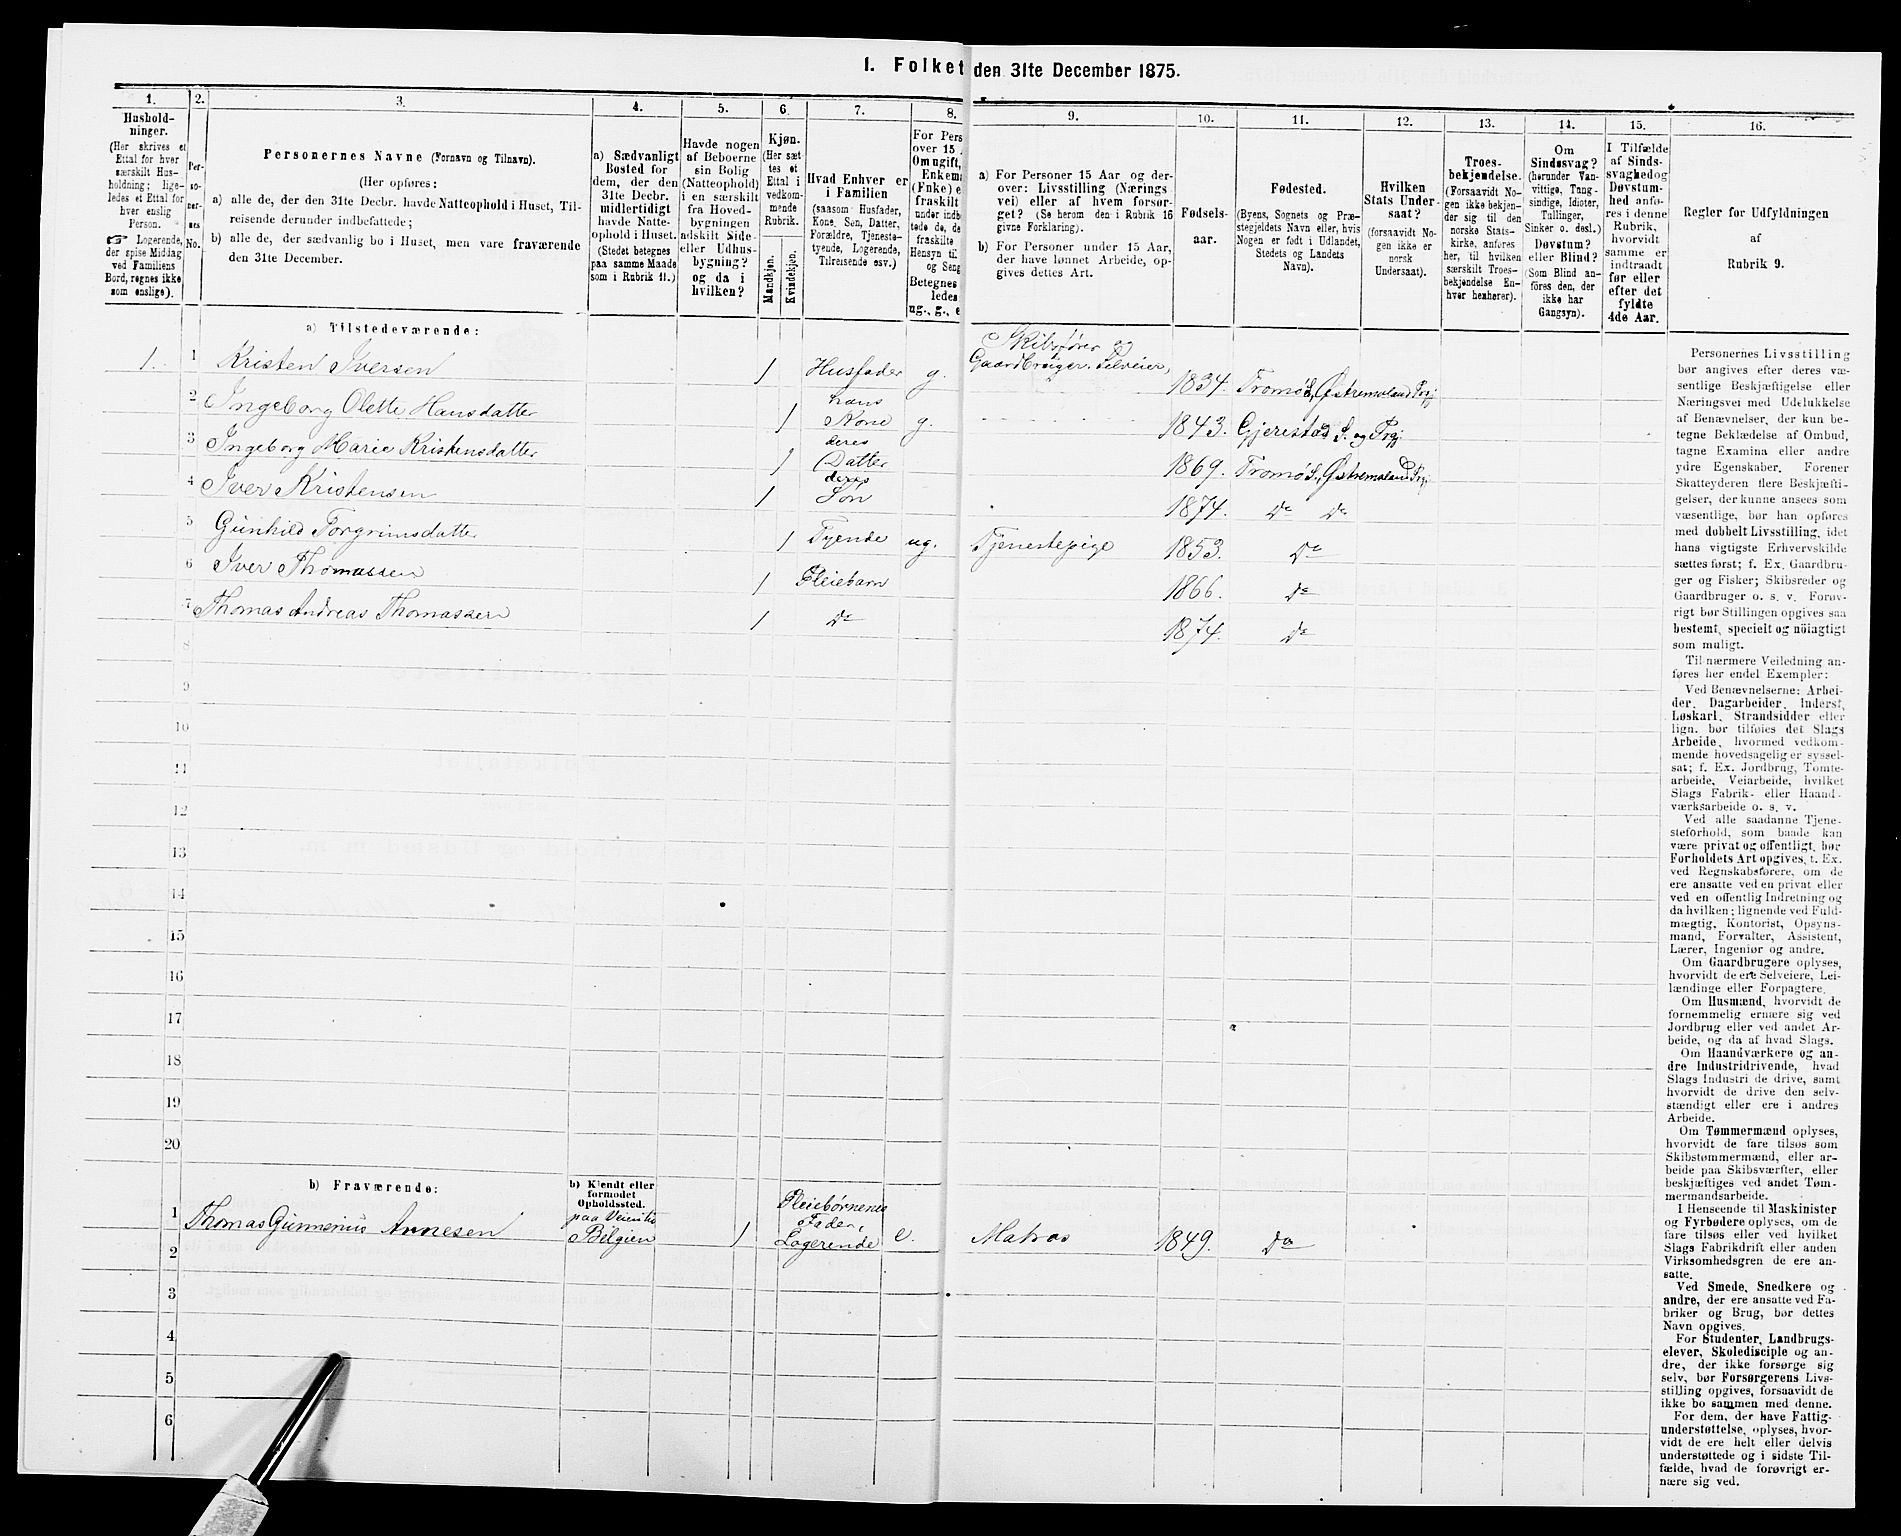 1. Folket den 31te December 1875.
1.
2.
3.
4.
5.
6.
7.
8.
9.
10.
11.
12.
13.
14.
15.
16.
Hushold-
ninger.
(Her skrives et
Ettal for hver
særskilt Hus-
holdning; lige-
ledes et Ettal for
hver enslig
Person.
☞ Logerende,
der spise Middag
ved Familiens
Bord, regnes ikke
som enslige).
Per-
so-
ner-
nes
No.
Personernes Navne (Fornavn og Tilnavn).
(Her opføres:
a) alle de, der den 31te Decbr. havde Natteophold i Huset, Til-
reisende derunder indbefattede;
b) alle de, der sædvanlig bo i Huset, men vare fraværende
den 31te December.
a) Sædvanligt
Bosted for
dem, der den
31te Decbr.
midlertidigt
havde Natte-
ophold i Huset.
(Stedet betegnes
paa samme Maade
som i Rubrik 11.)
Havde nogen
af Beboerne
sin Bolig
(Natteophold)
i en særskilt
fra Hoved-
bygningen
adskilt Side-
eller Udhus-
bygning?
og da i
hvilken?
Kjøn.
(Her sæt
tes et
Ettal i
vedkom-
mende
Rubrik.
Mandkjøn.
Kvindekjøn.
Hvad Enhver er
i Familien
(saasom Husfader,
Kone, Søn, Datter,
Forældre, Tjeneste-
tyende, Logerende,
Tilreisende osv.)
For Pers
over 15
Om ugift,
Enkema
(Fnke) e
fraskilt
under indb
tede de, de
fraskilte
Hensyn til
og Seng
Betegnes
ledes
ug., g., e
a) For Personer 15 Aar og der-
over: Livsstilling (Nærings
vei) eller af hvem forsør-
get? (Se herom den i Rubrik 16
givne Forklaring).
b) For Personer under 15 Aar,
der have lønnet Arbeide, op-
gives dettes Art.
Fødsels-
aar.
Fødested.
(Byens, Sognets og Præ-
stegjeldets Navn eller, hvis
Nogen er født i Udlandet,
Stedets og Landets
Navn).
Hvilken
Stats Under-
saat?
(forsaavidt No-
gen ikke er
norsk
Undersaat).
Troes-
bekjendelse.
(Forsaavidt No-
gen ikke bekjen-
der sig til den
norske Stats-
kirke, anføres
her, til hvilken
særskilt Troes-
bekjendelse En-
hver henhører).
Om
Sindssvag?
(herunder Van-
vittige, Tung-
sindige, Idioter,
Tullinger,
Sinker o. desl.)
Døvstum?
eller Blind?
(Som Blind an-
føres den, der
ikke har
Gangsyn).
I Tilfælde
af Sinds-
svaghed og
Døvstum-
hed anfø-
res i denne
Rubrik,
hvorvidt
samme er
indtraadt
før eller
efter det
fyldte
4de Aar.
Regler for Udfyldningen
af
Rubrik 9.
a) Tilstedeværende:
Skibsfører og
1. 1 Kristen Iversen 1 Husfader g. Gaardbruiger, Selveier, 1834. Tromø S., Østremoland Prgj
2 Ingeborg Olette Hansdatter 1 hans Kone g. 1843. Gjerestad S. og Prgj
3 Ingeborg Marie Kristensdatter 1 deres Datter 1869. Tromø S., Østremoland Prgj
4 Iver Kristensen 1 deres Søn 1874. Do Do
5 Gunhild Torgrimsdatter 1 Tyende ug. Tjenestepige 1853. Do
6 Iver Thomassen 1 Pleiebarn 1866. Do
7 Thomas Andreas Thomassen 1 Do 1874. Do
8
9
10
11
12
13
14
15
16
17
18
19
20
b) Fraværende:
b) Kjendt eller
formodet
Opholdssted.
1 Thomas Gunnerius Annesen paa Veien til Belgien 1 Pleiebørnenes Fader, Logerende e. Matros 1849. Do
2
3
4
5
6
Personernes Livsstilling
bør angives efter deres væ-
sentlige Beskjæftigelse eller
Næringsvei med Udelukkelse
af Benævnelser, der kun be-
tegne Beklædelse af Ombud,
tagne Examina eller andre
ydre Egenskaber. Forener
Skatteyderen flere Beskjæfti-
gelser, der kunne ansees som
væsentlige, bør han opføres
med dobbelt Livsstilling, idet
hans vigtigste Erhvervskilde
sættes først; f. Ex. Gaardbru-
ger og Fisker; Skibsreder og
Gaardbruger o. s. v. Forøv-
rigt bør Stillingen opgives saa
bestemt, specielt og nöiagtigt
som muligt.
Til nærmere Veiledning an-
føres her endel Exempler:
Ved Benævnelserne: Arbei-
der, Dagarbeider, Inderst,
Løskarl, Strandsidder eller
lign. bør tilføies det Slags
Arbeide, hvormed vedkom-
mende hovedsagelig er syssel-
sat; f. Ex. Jordbrug, Tomte-
arbeide, Veiarbeide, hvilket
Slags Fabrik- eller Haand-
værksarbeide o. s. v.
Ved alle saadanne Tjene-
steforhold, som baade kan
være privat og offentligt, bør
Forholdets Art opgives, f. Ex.
ved Regnskabsførere, om de
ere ansatte ved en privat eller
ved en offentlig Indretning og
da hvilken; lignende ved Fuld-
mægtig, Kontorist, Opsyns-
mand, Forvalter, Assistent,
Lærer, Ingeniør og andre.
Om Gaardbrugere oplyses,
hvorvidt de ere Selveiere, Lei-
lændinge eller Forpagtere.
Om Husmænd, hvorvidt de
fornemmelig ernære sig ved
Jordbrug eller ved andet Ar-
beide, og da af hvad Slags.
Om Haandværkere og an-
dre Industridrivende, hvad
Slags Industri de drive, samt
hvorvidt de drive den selv-
stændigt eller ere i andres
Arbeide.
Om Tømmermænd oplyses,
hvorvidt de fare tilsøs som
Skibstømmermænd, eller ar-
beide paa Skibsværfter, eller
beskjæftiges ved andet Tøm-
mermandsarbeide.
I Henseende til Maskinister
og Fyrbødere oplyses, om de
fare tilsøs eller ved hvilket
Slags Fabrikdrift eller anden
Virksomhedsgren de ere an-
satte.
Ved Smede, Snedkere og
andre, der ere ansatte ved Fa-
briker og Brug, bør dettes
Navn opgives.
For Studenter, Landbrugs-
elever, Skoledisciple og an-
dre, der ikke forsørge sig
selv, bør Forsørgerens Livs-
stilling opgives, forsaavidt de
ikke bo sammen med denne.
For dem, der have Fattig-
understøttelse, oplyses, hvor-
vidt de ere helt eller delvis
understøttede og i sidste Til-
fælde, hvad de forøvrigt er-
nære sig ved.